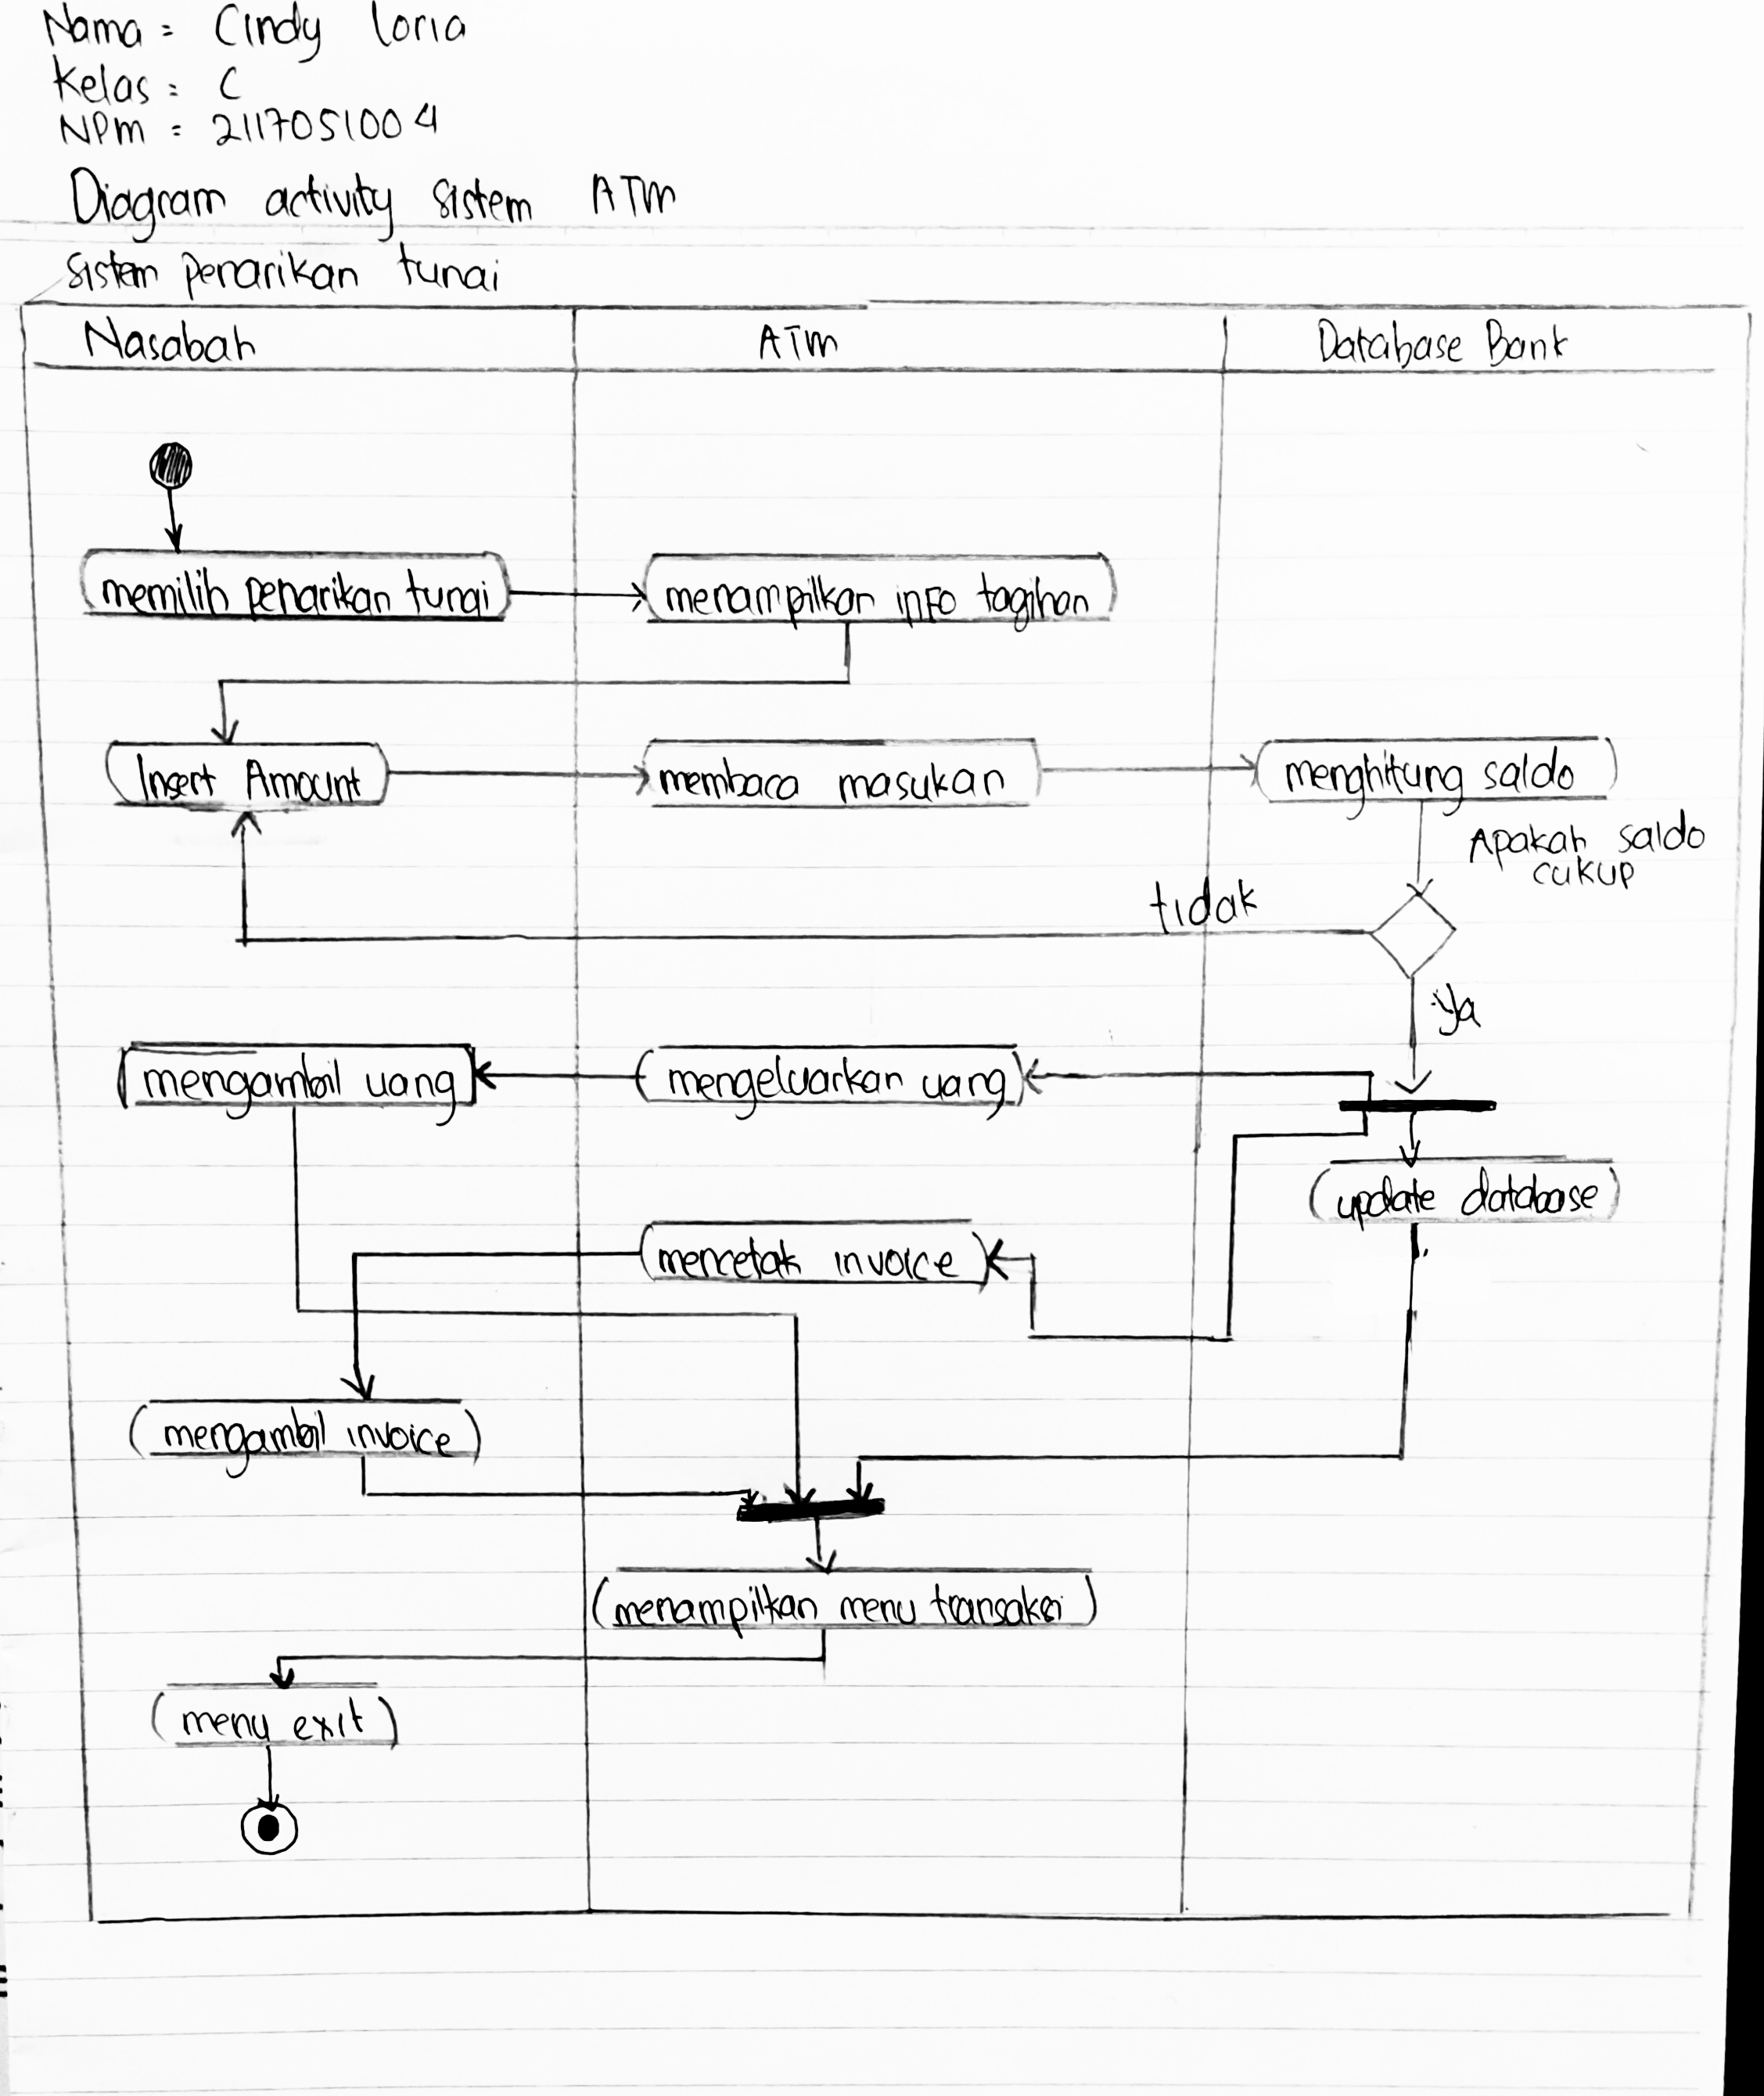 Nama = Cindy Loria
Kelas = C
NPM = 2117051004
Diagram activity sistem ATM
sistem penarikan tunai
Nasabah ATM Database Bank
memilih penarikan tungi menampilkan info tagihan
Insert Amount membaca masukan menghitung saldo
Apakah saldo
cukup
tidak
ya
mengambil uang mengeluarkan uang
update database
mencetak invoice
mengambil invoice
menampilkan menu transaksi
menu exit